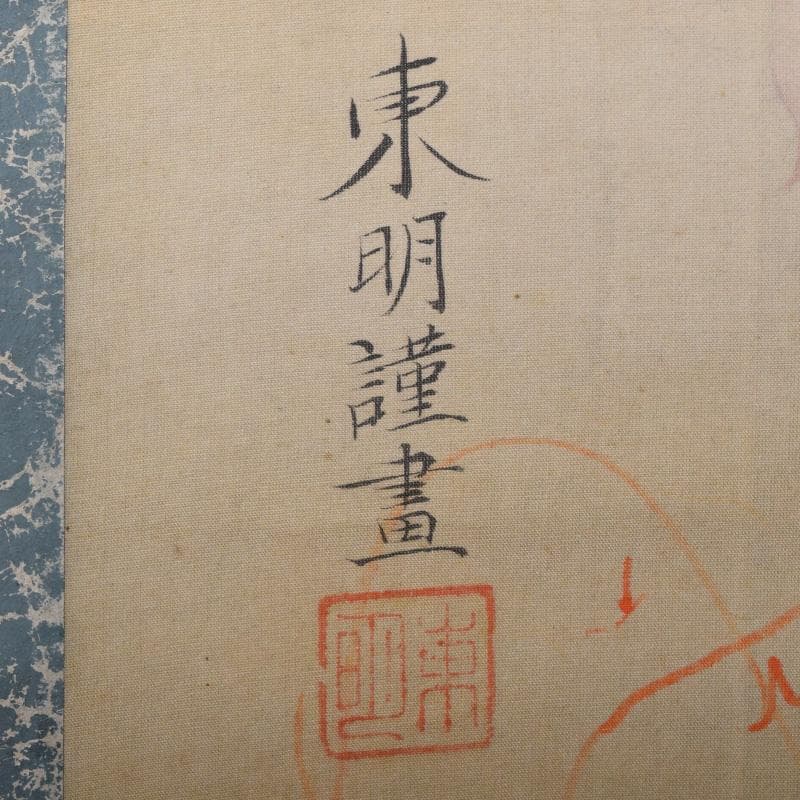 東明謹畫
東明